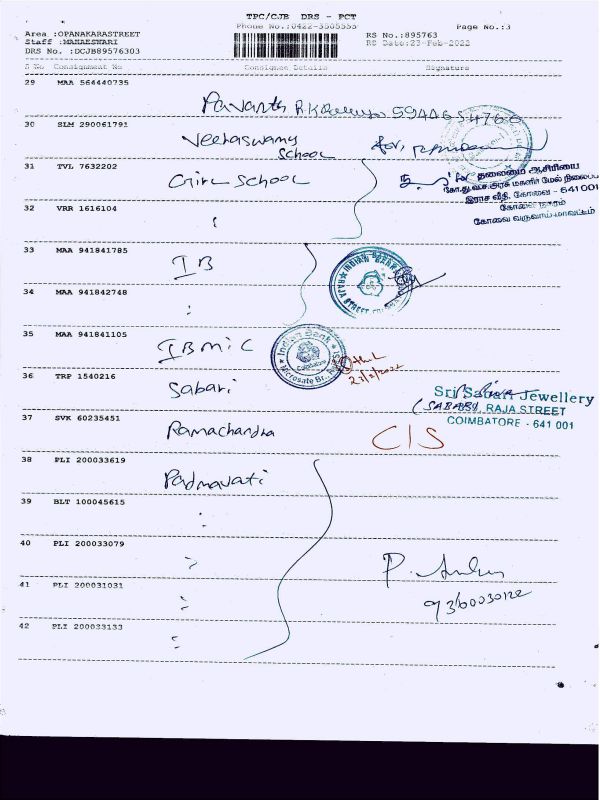 TPC/CJB DRS - PCT
Phone No.:0422-3505555
Page No.:3
Area :OPANAKARASTREET
Staff :MAHAESWARI
DRS No. :DCJB89576303
RS No.:895763
RS Date:23-Feb-2022
S No Consignment No Consignee Details Signature
29 MAA 564440735
30 SLM 290061791
Veeraswamy
School
for,
31 TVL 7632202
Girl School
தலைமை ஆசிரியை
இராச வீதி, கோவை - 641 001
கோவை நகரம்
கோவை வருவாய் மாவட்டம்
32 VRR 1616104
33 MAA 941841785
IB
INDIAN BANK
RAJA STREET
34 MAA 941842748
35 MAA 941841105
IB MIC
Indian Bank
Coimbatore
23/2/2022
36 TRP 1540216
Sabari
Sri Sabari Jewellery
(SABARI) RAJA STREET
COIMBATORE - 641 001
37 SVK 60235451
Ramachandra
C/S
38 PLI 200033619
Padmavati
39 BLT 100045615
40 PLI 200033079
P.
9360030122
41 PLI 200031031
42 PLI 200033133